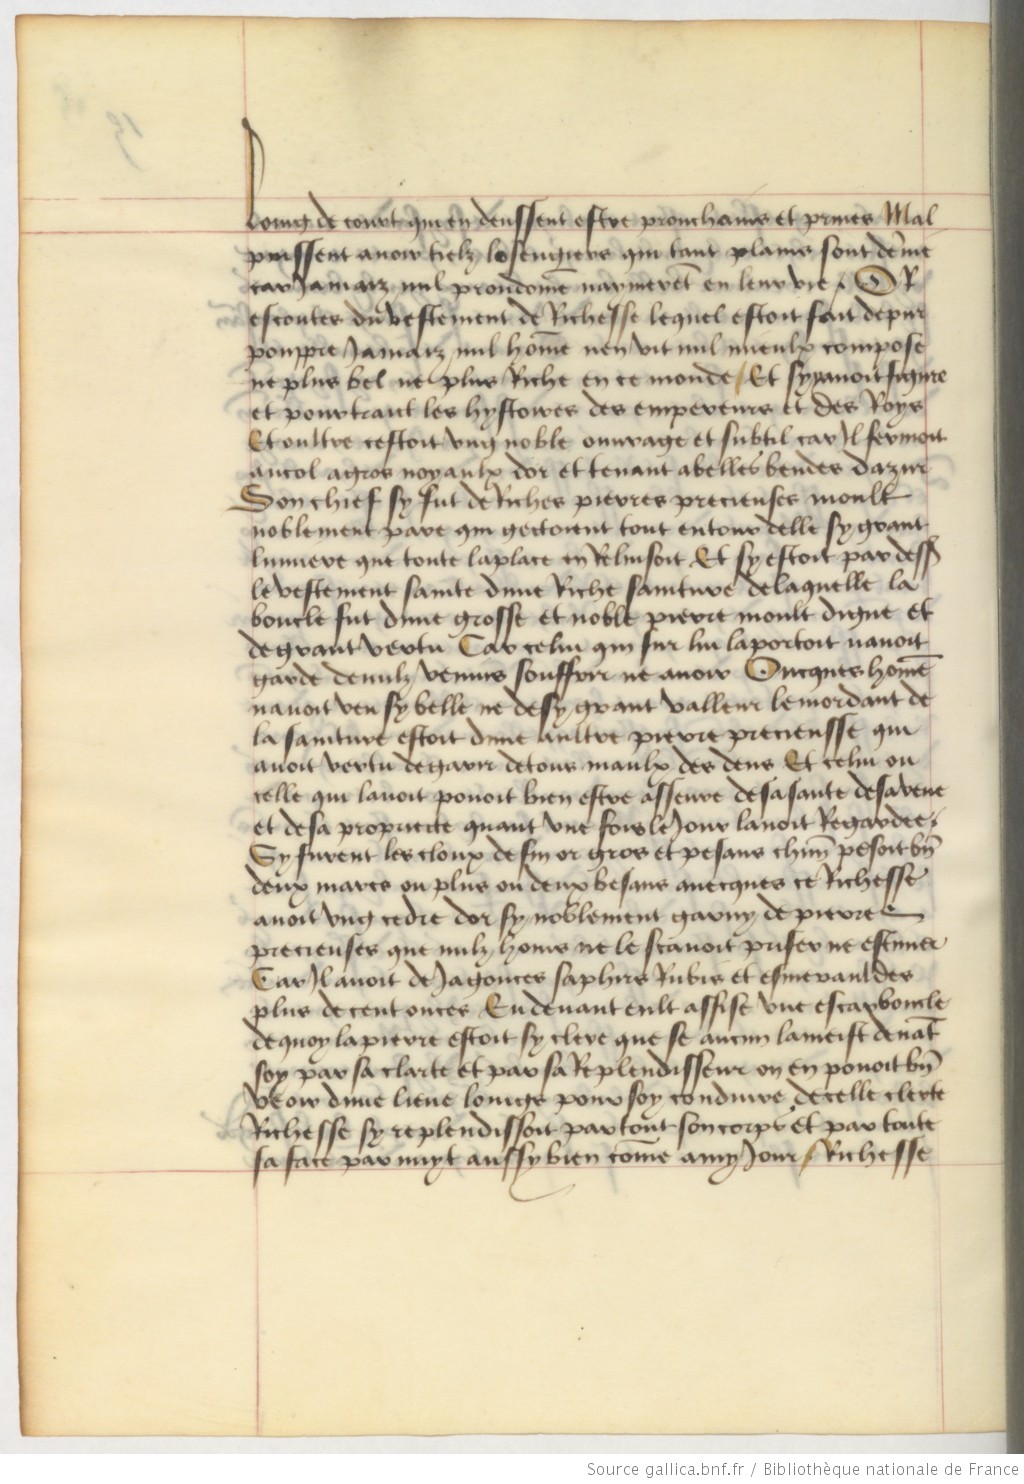 Loing de court qui en deussent estre prouchains et prives Mal
puissent avoir tielz losengiers qui tant plains sont denvie
car Jamaiz nul proudom̄e naymerēt en leur vie / OR
escoutes du vestement de Richesse lequel estoit fait de pur
pourpre Jamaiz nul hom̄e nen vit nul mieulx compose
ne plus bel ne plus Riche en ce monde / Et sy y avoit figure
et pourtrait les hystoires des empereurs et des Roys
Et oultre cestoit ung noble ouvrage et subtil car Il fermoit
au col a gros noyaulx dor et tenant a belles bendes dazur
Son chief sy fut de Riches pierres precieuses moult
noblement pare qui gectoient tout entour delle sy grant
lumiere que toute la place en Reluisoit Et sy estoit par dess9
le vestement sainte dune Riche sainture de laquelle la
boucle fut dune grosse et noble pierre moult digne et
de grant vertu Car celui qui sur lui la portoit navoit
garde de nulz venins souffrir ne avoir Oncques hom̄e
navoit veu sy belle ne de sy grant valleur le mordant de
la sainture estoit dune aultre pierre preciensse qui
avoit vertu de garir de tous maulx des dens Et celui ou
celle qui lavoit povoit bien estre asseure de sa sante de sa veue
et de sa propriete quant une fois le Jour lavoit Regardee /
Sy furent les cloux de fin or gros et pesans chūn pesoit bn̄
deux marcs ou plus ou deux besans avecques ce Richesse
avoit ung cedre dor sy noblement garny de pierre
precieuses que nulz homs ne le scavoit priser ne estimer
Car Il avoit de Jagonces saphirs Rubis et esmerauldes
plus de cent onces En devant eult assise une escarboucle
de quoy la pierre estoit sy clere que se aucun la meist devāt
soy par sa clarte et par sa Replendisseur on en povoit bn̄
veoir dune lieue loings pour soy conduire de celle clerte
Richesse sy replendissoit par tout son corps et par toute
sa face par nuyt aussy bien com̄e a my Jour / Richesse
Source gallica.bnf.fr / Bibliothèque nationale de France